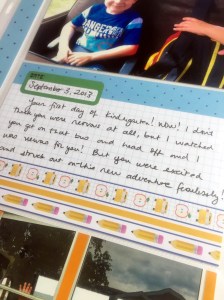 DANGEROUS
DATE
September 3, 2013
Your first day of Kindergarten! Wow! I don't
think you were nervous at all, but I watched
you get on that bus and head off and I
was nervous for you! But you were excited
and struck out on this new adventure fearlessly!